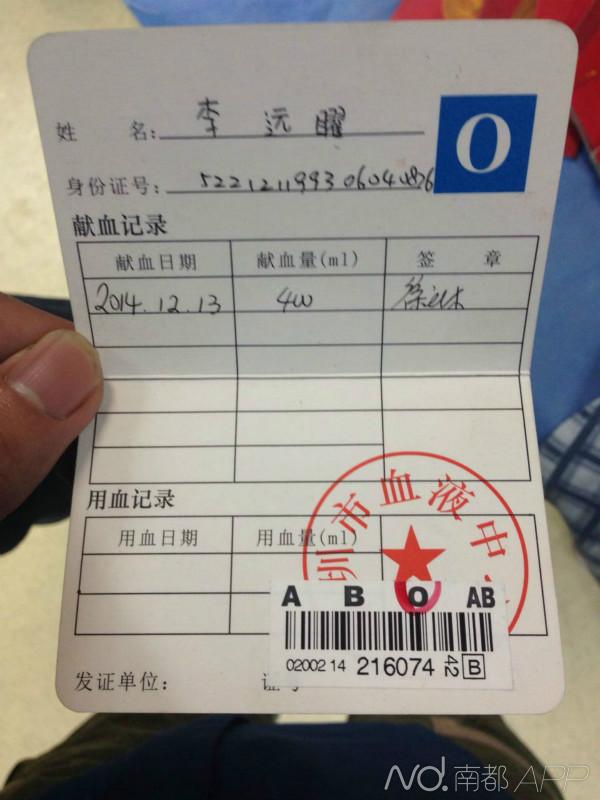 姓 名： 李远曜
O
身份证号： 522121199306040876
献血记录
献血日期 献血量(ml) 签 章
2014.12.13 400
用血记录
用血日期 用血量(ml)
圳市血液中
A B O AB
02002 14 216074 42 B
发证单位： 证号
Nd.南都APP